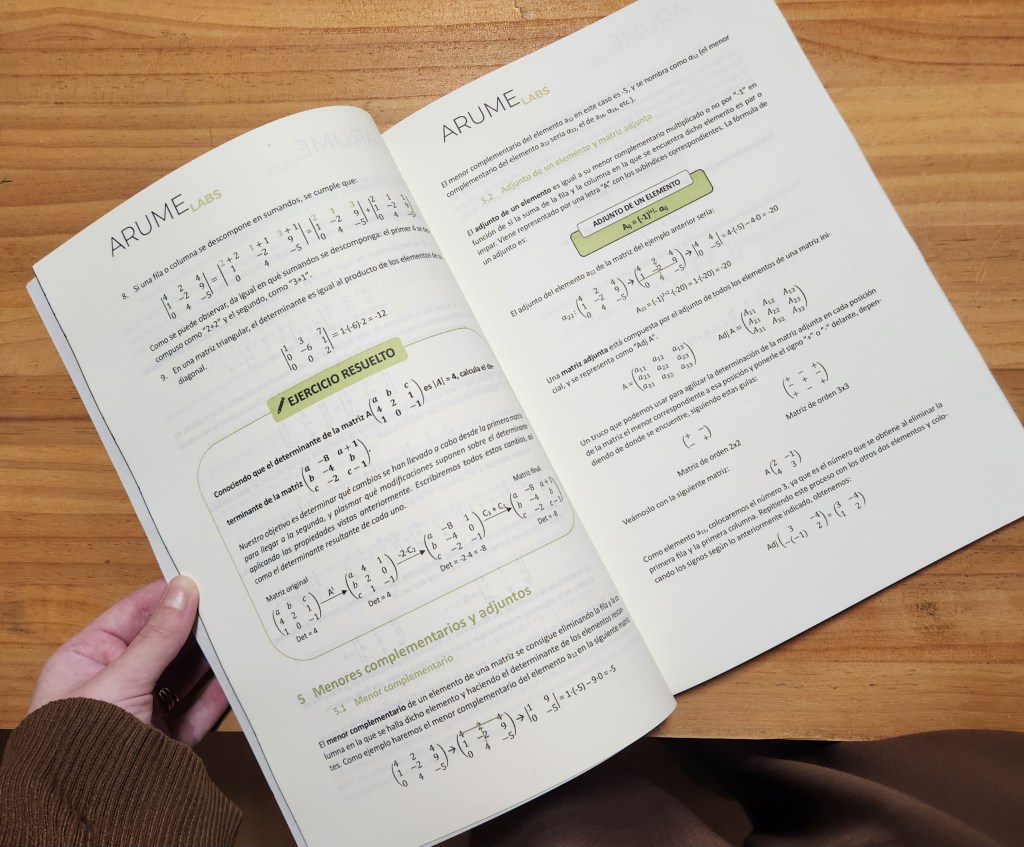 ARUME LABS
8. Si una fila o columna se descompone en sumandos, se cumple que:
|4 2 4| |2+2 1+1 3+1| |2 1 3| |2 1 1|
|1 -2 9| = |1 -2 9| = |1 -2 9| + |1 -2 9|
|0 4 -5| |0 4 -5| |0 4 -5| |0 4 -5|
Como se puede observar, da igual en qué sumandos se descomponga: el primer 4 se
compuso como "2+2" y el segundo, como "3+1".
9. En una matriz triangular, el determinante es igual al producto de los elementos de
diagonal.
|1 3 7|
|0 -6 1| = 1·(-6)·2 = -12
|0 0 2|
EJERCICIO RESUELTO
Conociendo que el determinante de la matriz A (a b c / 4 2 1 / 1 0 -1) es |A| = 4, calcula el de-
terminante de la matriz (a -8 a+1 / b -4 b / c -2 c-1).
Nuestro objetivo es determinar qué cambios se han llevado a cabo desde la primera matriz
para llegar a la segunda, y plasmar qué modificaciones suponen sobre el determinante
aplicando las propiedades vistas anteriormente. Escribiremos todos estas cambios, así
como el determinante resultante de cada uno.
Matriz original Matriz final
(a b c) (a 4 1) (a -8 1) (a -8 a+1)
(4 2 1) Aᵗ→ (b 2 0) -2·C₂→ (b -4 0) C₃+C₁→ (b -4 b)
(1 0 -1) (c 1 -1) (c -2 -1) (c -2 c-1)
Det = 4 Det = 4 Det = -2·4 = -8 Det = -8
5 Menores complementarios y adjuntos
5.1 Menor complementario
El menor complementario de un elemento de una matriz se consigue eliminando la fila y la co
lumna en la que se halla dicho elemento y haciendo el determinante de los elementos restan
tes. Como ejemplo haremos el menor complementario del elemento a₁₂ en la siguiente matriz
(4 2 4) (4 2 4)
(1 -2 9) → (1 -2 9) → |1 9| = 1·(-5) - 9·0 = -5
(0 4 -5) (0 4 -5) |0 -5|
ARUME LABS
El menor complementario del elemento a₁₂ en este caso es -5, y se nombra como α₁₂ (el menor
complementario del elemento a₂₃ sería α₂₃, el de a₁₄, α₁₄, etc.).
5.2 Adjunto de un elemento y matriz adjunta
El adjunto de un elemento es igual a su menor complementario multiplicado o no por "-1" en
función de si la suma de la fila y la columna en la que se encuentra dicho elemento es par o
impar. Viene representado por una letra "A" con los subíndices correspondientes. La fórmula de
un adjunto es:
ADJUNTO DE UN ELEMENTO
Aᵢⱼ = (-1)ⁱ⁺ʲ · αᵢⱼ
El adjunto del elemento a₂₂ de la matriz del ejemplo anterior sería:
(4 2 4) (4 2 4)
α₂₂: (1 -2 9) → (1 -2 9) → |4 4| = 4·(-5) - 4·0 = -20
(0 4 -5) (0 4 -5) |0 -5|
A₂₂ = (-1)²⁺²·(-20) = 1·(-20) = -20
Una matriz adjunta está compuesta por el adjunto de todos los elementos de una matriz ini-
cial, y se representa como "Adj A".
A = (a₁₁ a₁₂ a₁₃ / a₂₁ a₂₂ a₂₃ / a₃₁ a₃₂ a₃₃) Adj A = (A₁₁ A₁₂ A₁₃ / A₂₁ A₂₂ A₂₃ / A₃₁ A₃₂ A₃₃)
Un truco que podemos usar para agilizar la determinación de la matriz adjunta en cada posición
de la matriz el menor correspondiente a esa posición y ponerle el signo "+" o "-" delante, depen-
diendo de donde se encuentre, siguiendo estas guías:
(+ - / - +) (+ - + / - + - / + - +)
Matriz de orden 2x2 Matriz de orden 3x3
Veámoslo con la siguiente matriz:
A (2 -1 / 4 3)
Como elemento a₁₁, colocaremos el número 3, ya que es el número que se obtiene al eliminar la
primera fila y la primera columna. Repitiendo este proceso con los otros dos elementos y colo-
cando los signos según lo anteriormente indicado, obtenemos:
Adj (3 -4 / -(-1) 2) = (3 -4 / 1 2)